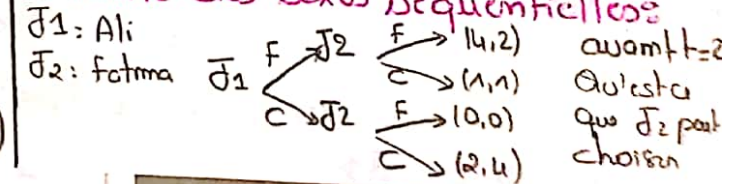 Sequentielles:
J1: Ali
J2: fatma
J1 F J2 F (4,2)
C (1,1)
C J2 F (0,0)
C (2,4)
avant t=2
Qu'est ce
que J2 peut
choisir